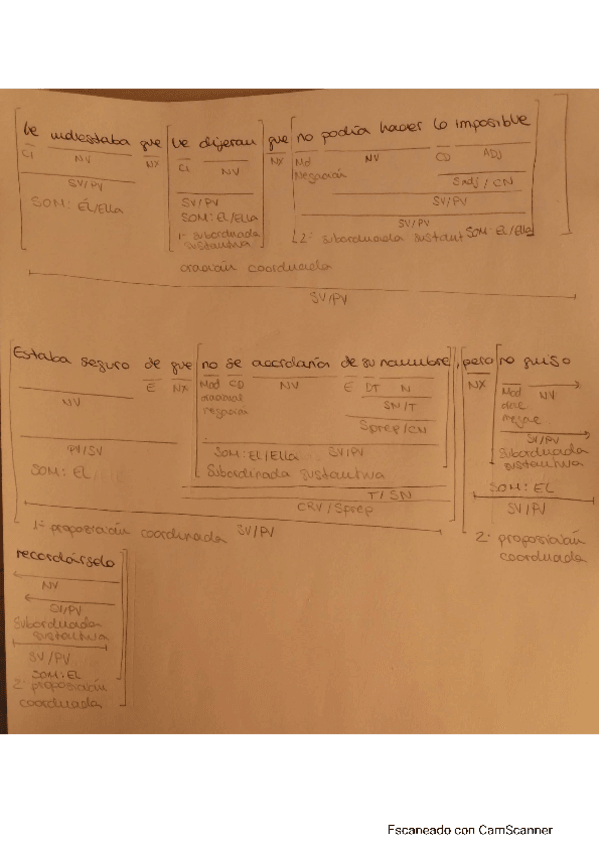 le molestaba que le dijeran que no podía hacer lo imposible
CI NV NX CI NV NX Md NV CD ADJ
Negación
SV/PV SV/PV Sadj/CN
SOM: ÉL/Ella SOM: EL/Ella SV/PV
1ª subordinada SV/PV
sustantiva 2ª subordinada sustant SOM: EL/Ella
oración coordinada
SV/PV
Estaba seguro de que no se acordaría de su nombre, pero no quiso
E NX Mod CD NV E DT N NX Mod NV
NV oracional
negación SN/T
Sprep/CN SV/PV
PV/SV SOM: EL/Ella SV/PV Subordinada
sustantiva
SOM: EL Subordinada sustantiva SOM: EL
T/SN SV/PV
CRV/Sprep
1ª proposición coordinada SV/PV 2ª proposición
coordinada
recordárselo
NV
SV/PV
Subordinada
sustantiva
SV/PV
SOM: EL
2ª proposición
coordinada
Escaneado con CamScanner